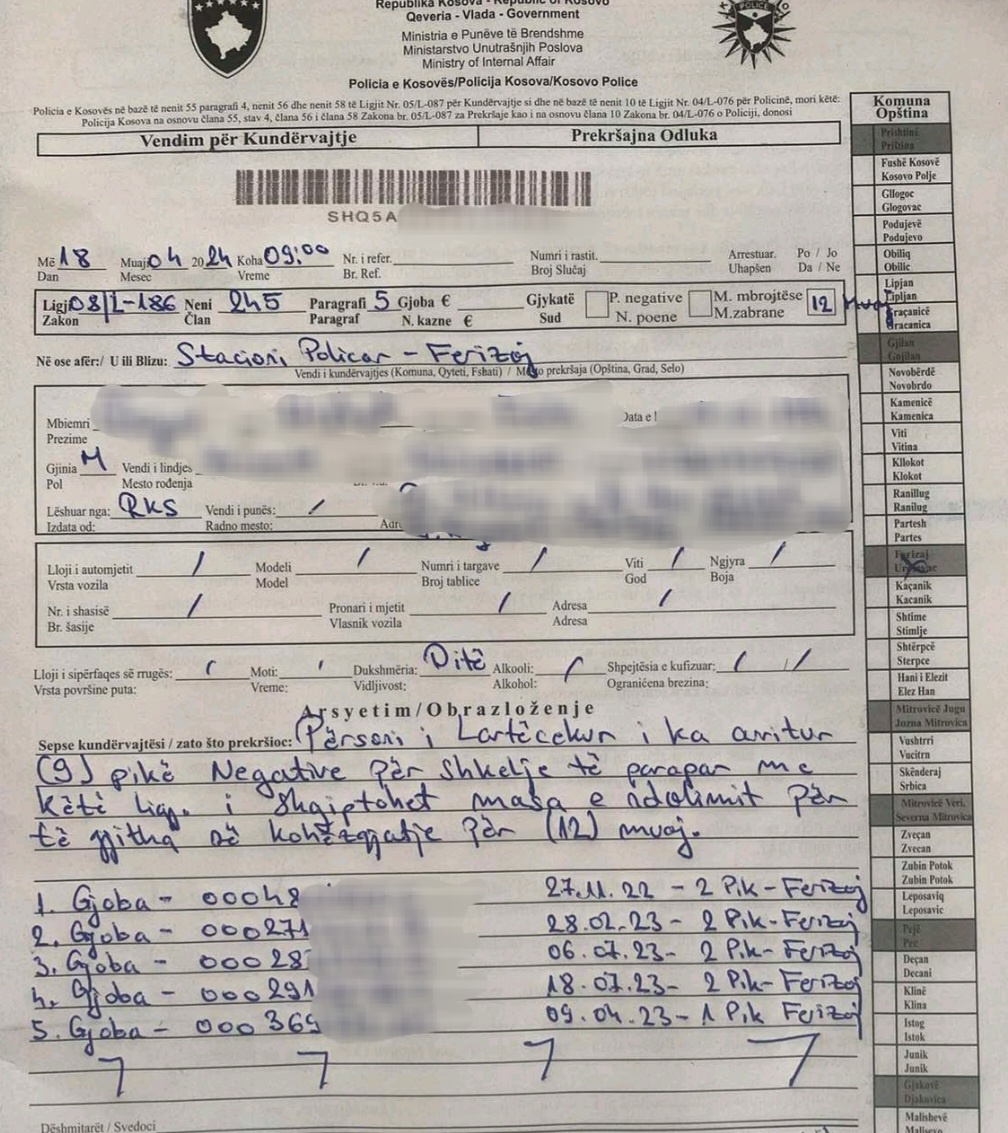 Republika Kosova - Republic of Kosovo
Qeveria - Vlada - Government
Ministria e Punëve të Brendshme
Ministarstvo Unutrašnjih Poslova
Ministry of Internal Affair
Policia e Kosovës/Policija Kosova/Kosovo Police
POLICE
Policia e Kosovës në bazë të nenit 55 paragrafi 4, nenit 56 dhe nenit 58 të Ligjit Nr. 05/L-087 për Kundërvajtje si dhe në bazë të nenit 10 të Ligjit Nr. 04/L-076 për Policinë, mori këtë:
Policija Kosova na osnovu člana 55, stav 4, člana 56 i člana 58 Zakona br. 05/L-087 za Prekršaje kao i na osnovu člana 10 Zakona br. 04/076 o Policiji, donosi
Vendim për Kundërvajtje Prekršajna Odluka
SHQ5A
Më 18 Muaj 04 2024 Koha 09:00 Nr. i refer. Numri i rastit. Arrestuar. Po / Jo
Dan Mesec Vreme Br. Ref. Broj Slučaj Uhapšen Da / Ne
Ligji 08/L-186 Neni 245 Paragrafi 5 Gjoba € Gjykatë P. negative M. mbrojtëse 12 muaj
Zakon Član Paragraf N. kazne € Sud N. poene M.zabrane
Në ose afër:/ U ili Blizu: Stacioni Policor - Ferizaj
Vendi i kundërvajtjes (Komuna, Qyteti, Fshati) / Mesto prekršaja (Opština, Grad, Selo)
Mbiemri Data e
Prezime
Gjinia M Vendi i lindjes
Pol Mesto rođenja
Lëshuar nga: RKS Vendi i punës: /
Izdata od: Radno mesto: Adr
Lloji i automjetit / Modeli / Numri i targave / Viti / Ngjyra /
Vrsta vozila Model Broj tablice God Boja
Nr. i shasisë / Pronari i mjetit / Adresa /
Br. šasije Vlasnik vozila Adresa
Lloji i sipërfaqes së rrugës: / Moti: Dukshmëria: Ditë Alkooli: / Shpejtësia e kufizuar: / /
Vrsta površine puta: Vreme: Vidljivost: Alkohol: Ograničena brezina:
Arsyetim/Obrazloženje
Sepse kundërvajtësi / zato što prekršioc: Personi i Lartëcekur i ka arritur
(9) pikë Negative për Shkelje të parapar me
këtë Ligj. i Shqiptohet masa e ndalimit për
të gjitha në kohëzgjatje për (12) muaj.
1. Gjoba - 00048 27.11.22 - 2 Pik - Ferizaj
2. Gjoba - 000271 28.02.23 - 2 Pik - Ferizaj
3. Gjoba - 00028 06.07.23 - 2 Pik - Ferizaj
4. Gjoba - 000291 18.07.23 - 2 Pik - Ferizaj
5. Gjoba - 000369 09.04.23 - 1 Pik Ferizaj
Dëshmitarët / Svedoci
Komuna
Opština
Prishtinë
Priština
Fushë Kosovë
Kosovo Polje
Gllogoc
Glogovac
Podujevë
Podujevo
Obiliq
Obilic
Lipjan
Lipljan
Graçanicë
Gracanica
Gjilan
Gnjilan
Novobërdë
Novobrdo
Kamenicë
Kamenica
Viti
Vitina
Kllokot
Klokot
Ranillug
Ranilug
Partesh
Partes
Ferizaj
Kaçanik
Kacanik
Shtime
Stimlje
Shtërpcë
Sterpce
Hani i Elezit
Elez Han
Mitrovicë Jugu
Juzna Mitrovica
Vushtrri
Vucitrn
Skënderaj
Srbica
Mitrovicë Veri.
Severna Mitrovica
Zveçan
Zvecan
Zubin Potok
Zubin Potok
Leposaviq
Leposavic
Pejë
Pec
Deçan
Decani
Klinë
Klina
Istog
Istok
Junik
Junik
Gjakovë
Djakovica
Malishevë
Malisevo